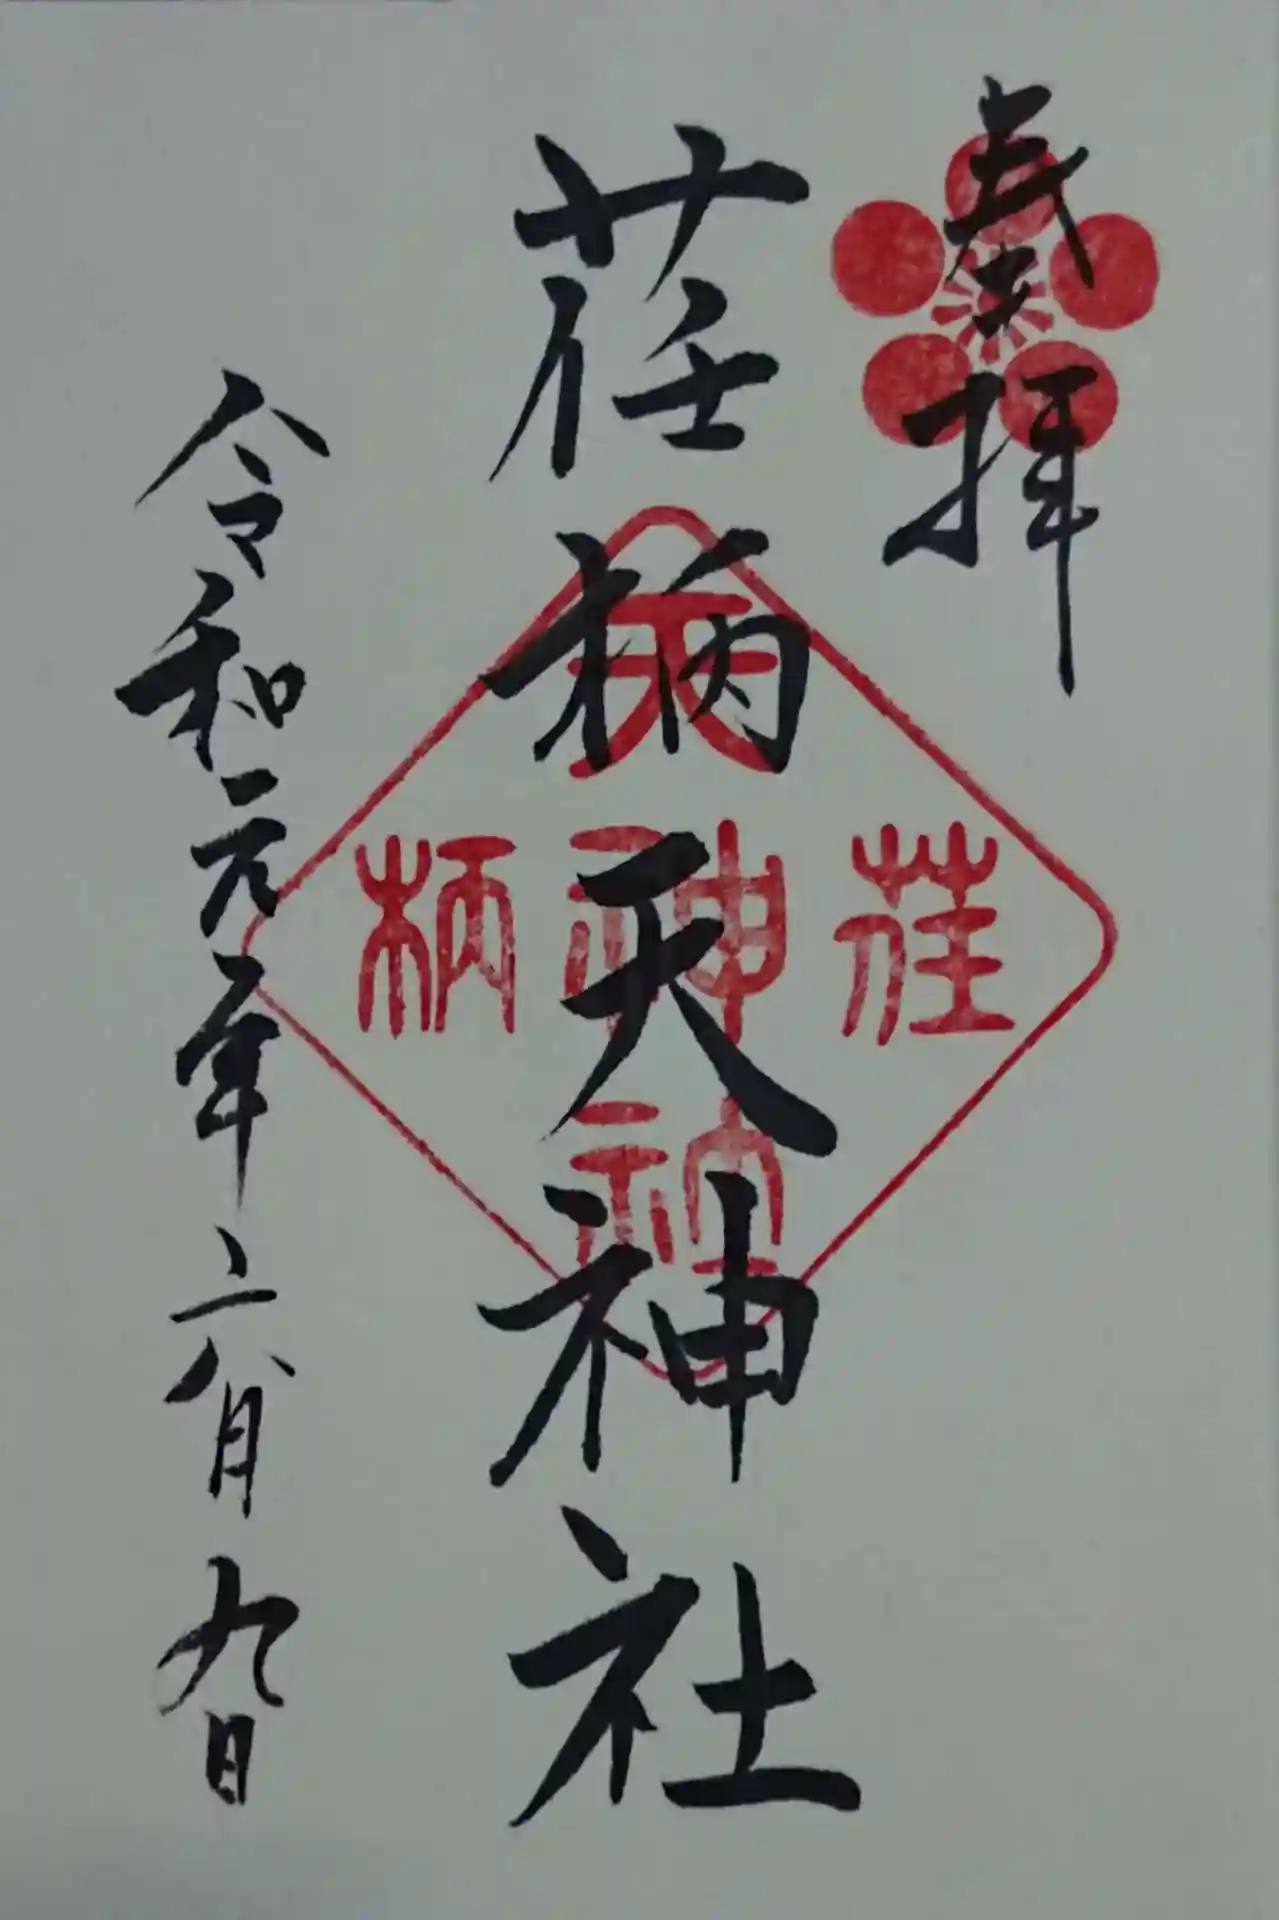 奉拝
荏柄天神社
令和元年六月九日
天
荏神柄
社